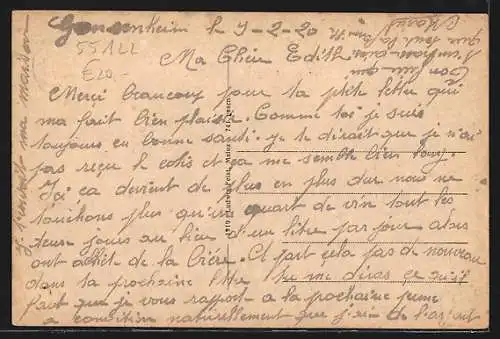 Gonsenheim le 9-2-20
55122
£20.-
Ma Chère Edith.
Merci beaucoup pour ta ptite lettre qui
ma fait bien plaisir. Comme toi je suis
toujours en bonne santé. je te dirait que je n'ai
pas reçu le colis et ça me semble bien long.
Ici ça devient de plus en plus dur nous ne
touchons plus qu'un quart de vin tout les
deux jours au lieu d'un litre par jour alors
ont achète de la bière. Et part cela pas de nouveau
dans ta prochaine lettre tu me diras ce qu'il
faut que je vous rapporte a la prochaine perme
a condition naturellement que j'ai de l'argent
j'envoit ma maison